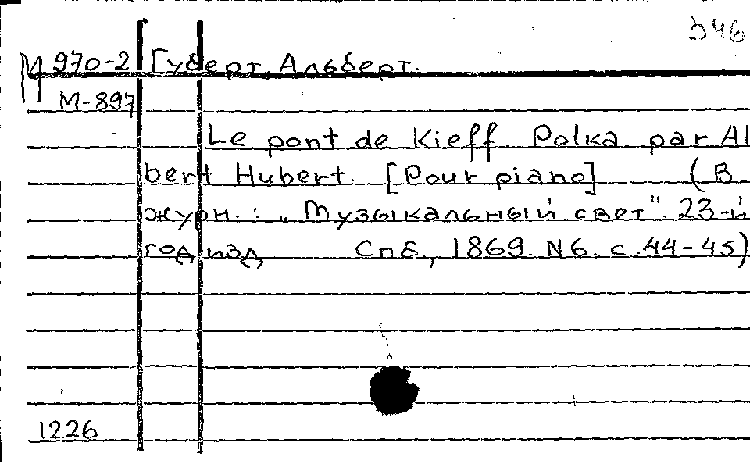 346
М 970-2 Губерт, Альберт.
М-897
Le pont de Kieff. Polka par Al
bert Hubert. [Pour piano] (В
журн.: „Музыкальный свет". 23-й
год изд. Спб., 1869. N6. с. 44-45)
1226